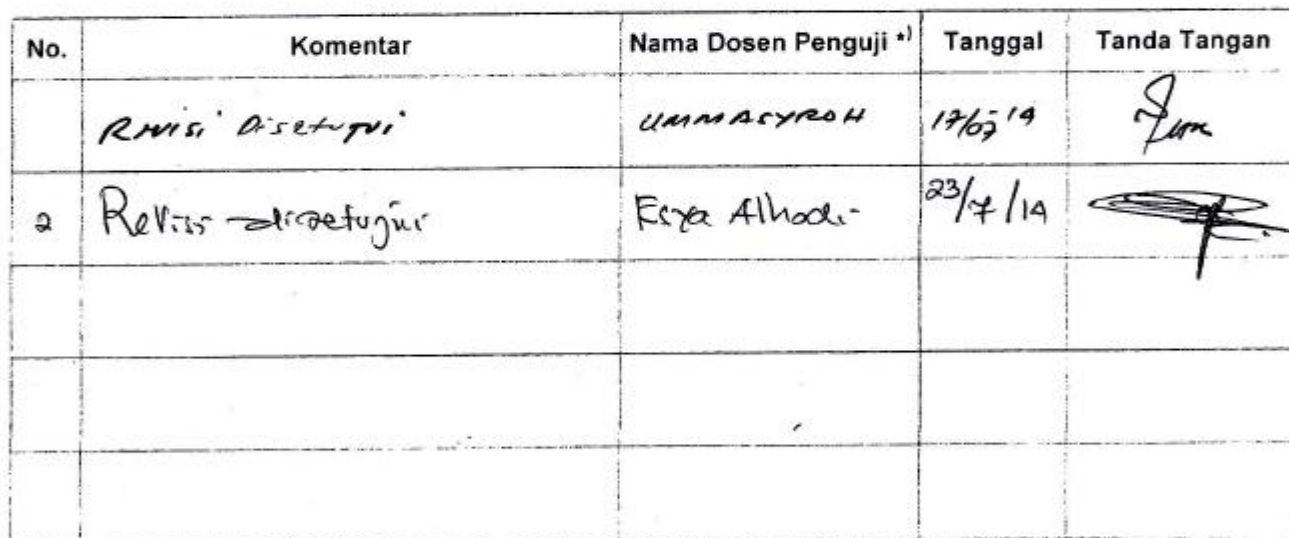 No. Komentar Nama Dosen Penguji *) Tanggal Tanda Tangan
Revisi Disetujui UMMASYROH 17/07 '14
2 Revisi disetujui Esya Alhadi 23/7/14